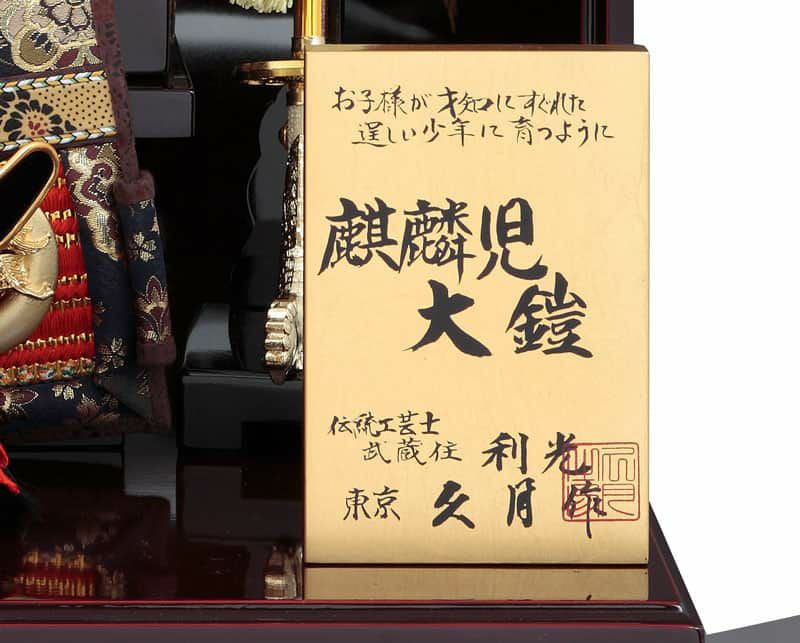 お子様が才知にすぐれた
逞しい少年に育つように
麒麟児
大鎧
伝統工芸士
武蔵住 利光
東京 久月作